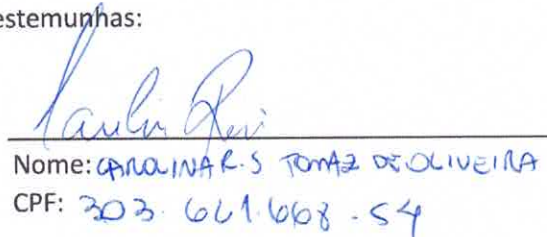 estemunhas:
Nome: CAROLINA R. S TOMAZ DE OLIVEIRA
CPF: 303. 661.668 - 54